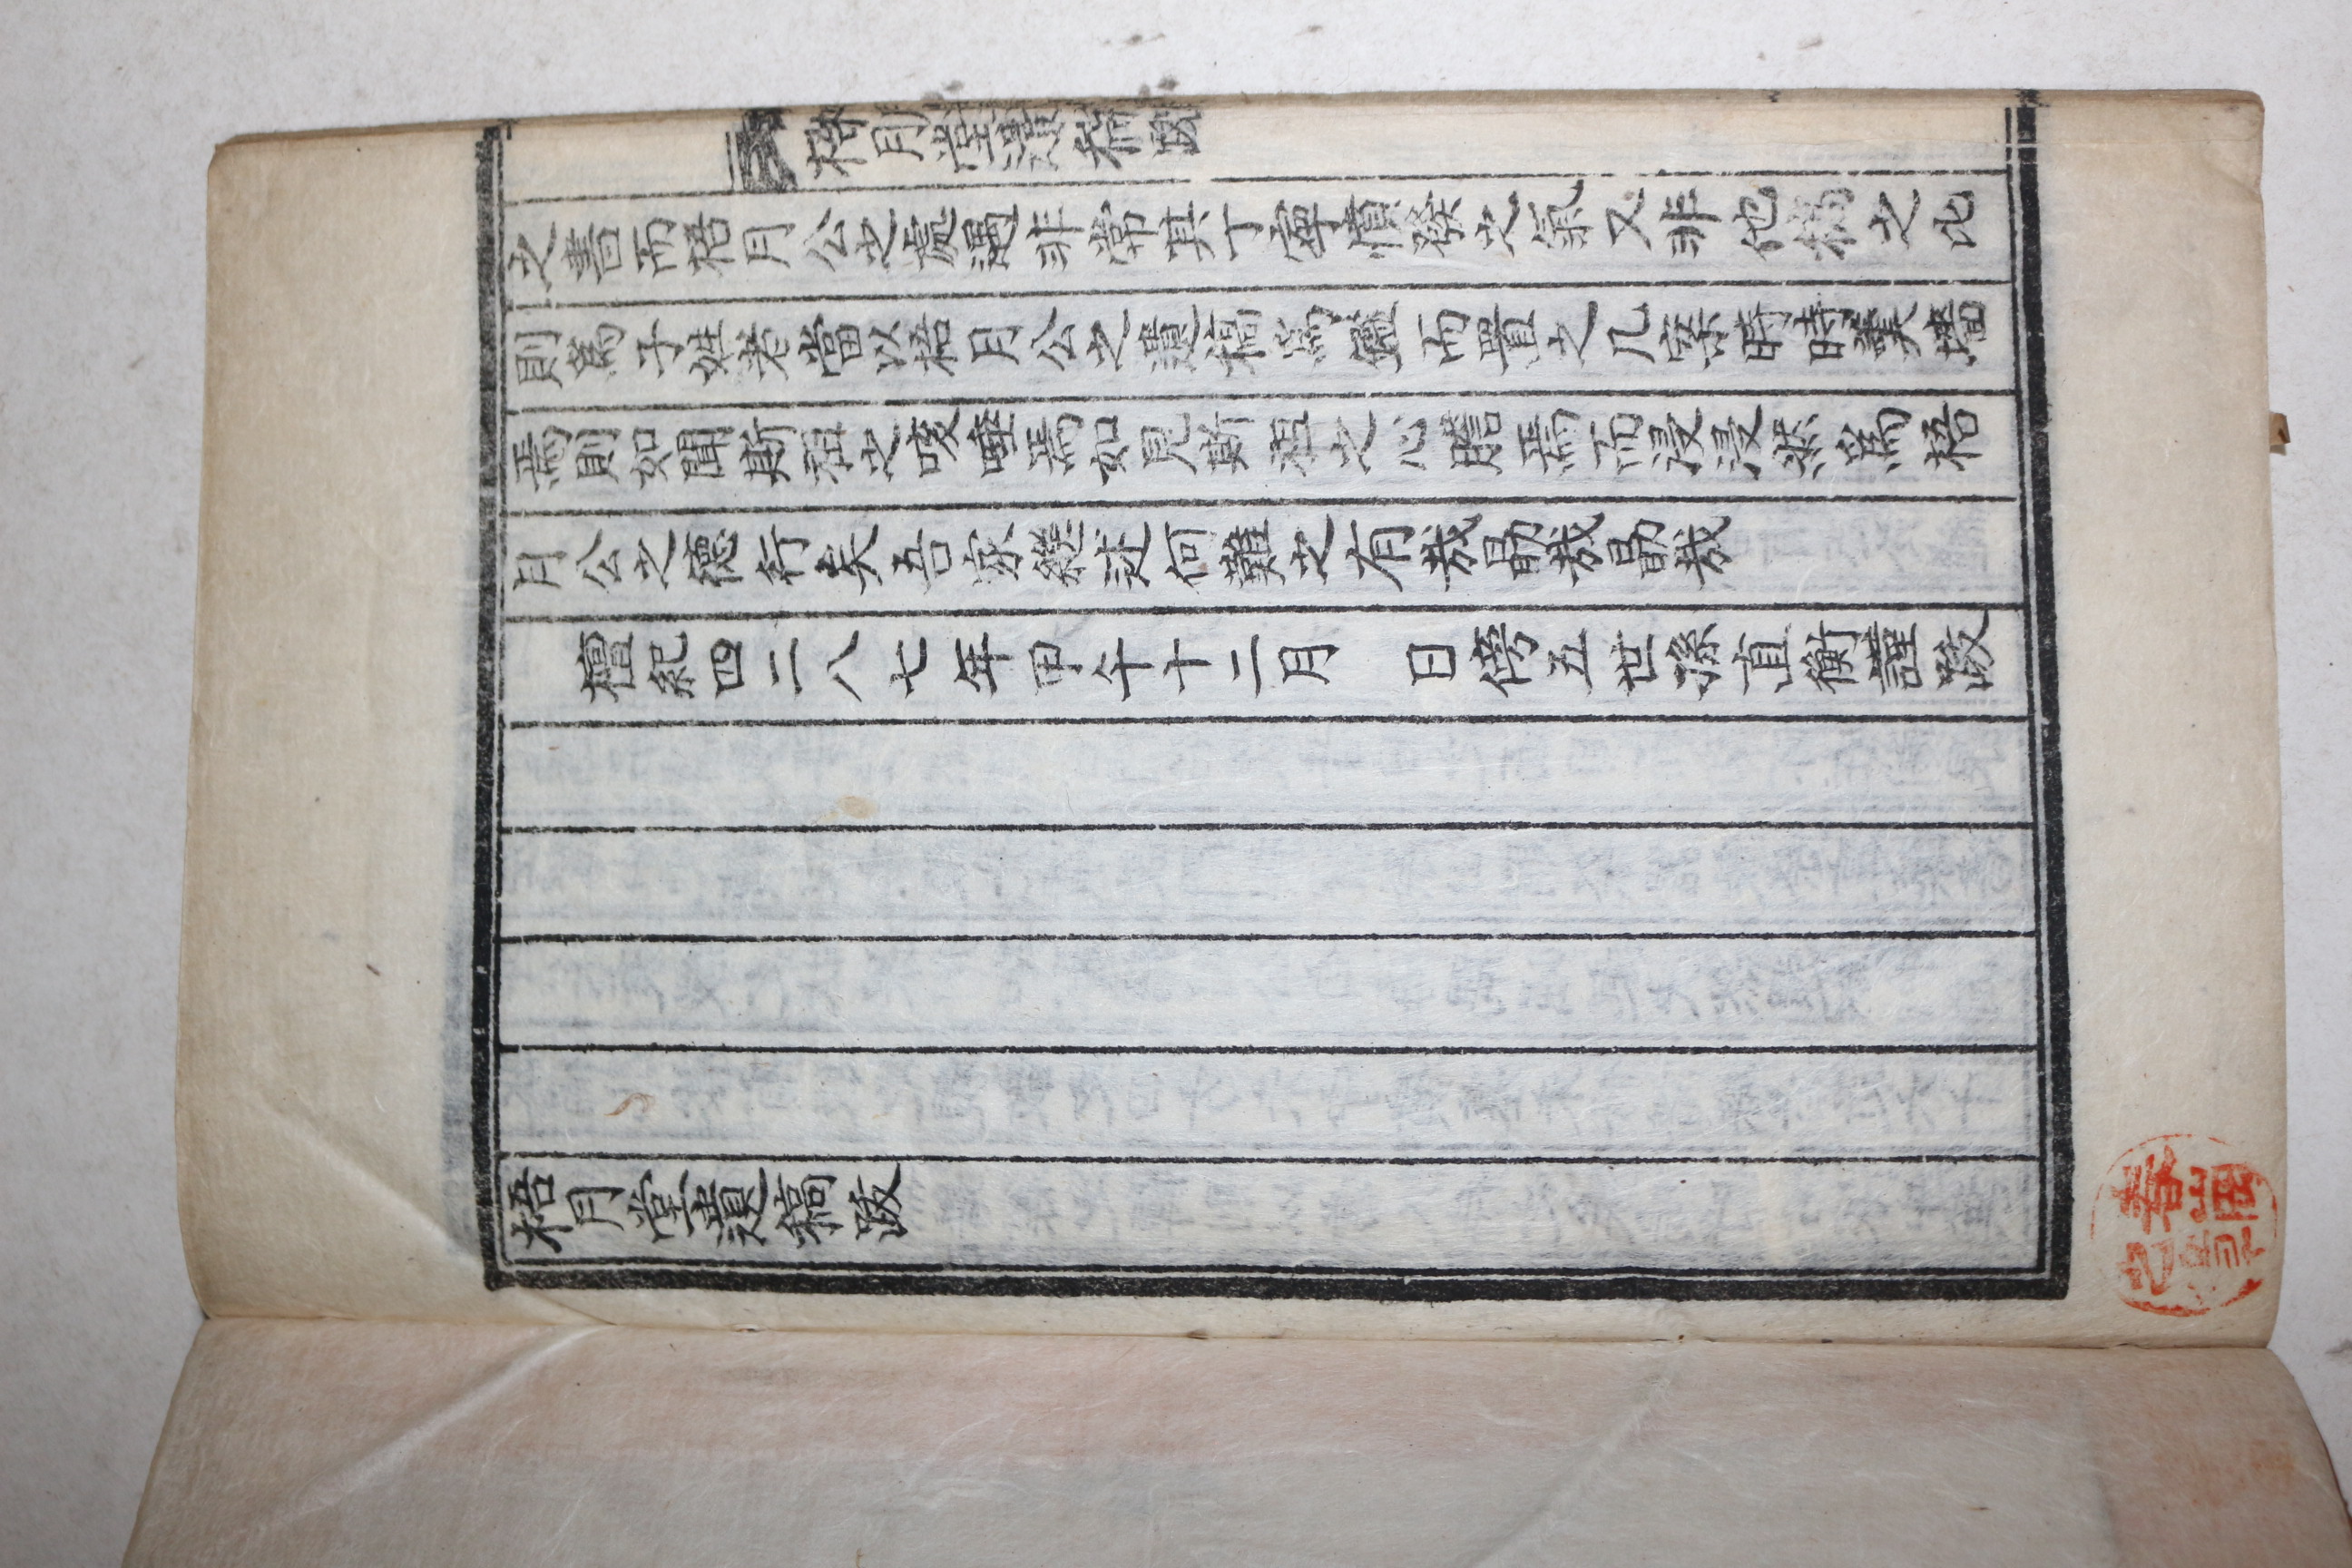 梧月堂遺稿跋
之書而梧月公之處遇非常其丁寧憤發之氣又非他稿之比
則爲子姓者當以梧月公之遺稿爲鑑而置之几案時時羹墻
焉則如聞斯祖之咳唾焉如見斯祖之心膽焉而浸浸然爲梧
月公之德行矣吾家繼述何難之有哉勗哉勗哉
檀紀四二八七年甲午十二月 日傍五世孫直衡謹跋
梧月堂遺稿跋
春岡
之